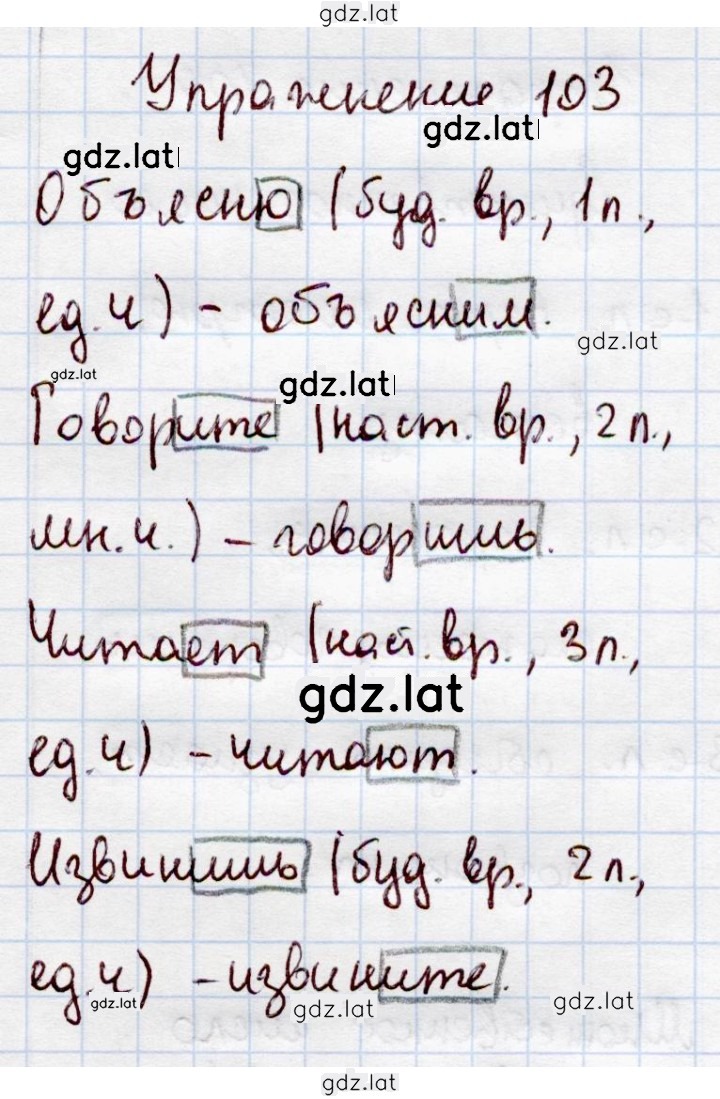 gdz.lat
Упражнение 103
gdz.lat
gdz.lat
Объясню (буд. вр., 1 п.,
ед. ч) - объясним.
gdz.lat
gdz.lat
gdz.lat
Говорите (наст. вр., 2 п.,
мн. ч.) - говоришь.
Читает (наст. вр., 3 п.,
gdz.lat
ед. ч) - читают.
Извинишь (буд. вр., 2 п.,
ед. ч) - извините.
gdz.lat
gdz.lat
gdz.lat
gdz.lat